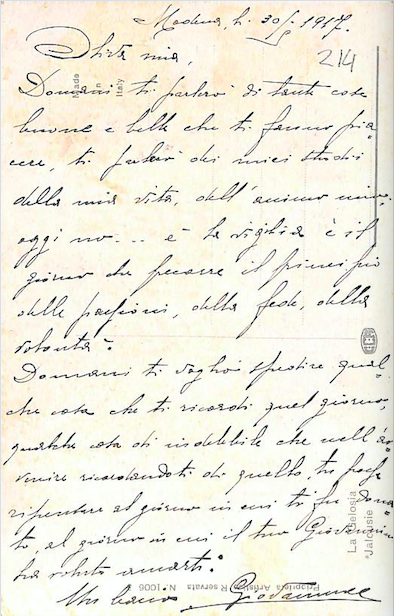 Modena, li. 30/5 1917.
214
mia,
Domani ti parlerò di tante cose
buone e belle che ti faranno pia-
cere, ti parlerò dei miei studi
della mia vita, dell'animo mio.
oggi no... è la vigilia è il
giorno che precorre il principio
delle passioni, della fede, della
volontà.
Domani ti voglio spedire qual-
che cosa che ti ricordi quel giorno,
qualche cosa di indelebile che nell'av-
venire ricordandoti di quello, ti possa
ripensare al giorno in cui ti fu dona-
to, al giorno in cui il tuo Giovannino
ha voluto amarti.
Un bacio Giovannino
Made
in
Italy
La Gelosia
"Jalousie
Proprietà Artistica Riservata N. 1006